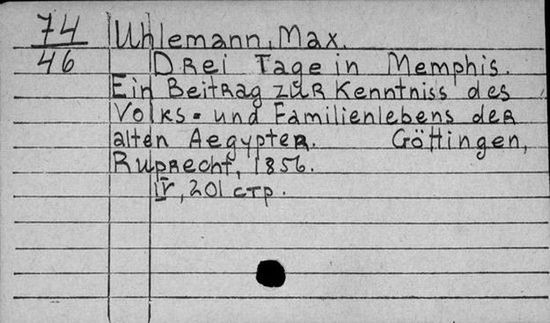 74
46
Uhlemann, Max.
Drei Tage in Memphis.
Ein Beitrag zur Kenntniss des
Volks- und Familienlebens der
alten Aegypter. Göttingen,
Ruprecht, 1856.
IV, 201 стр.